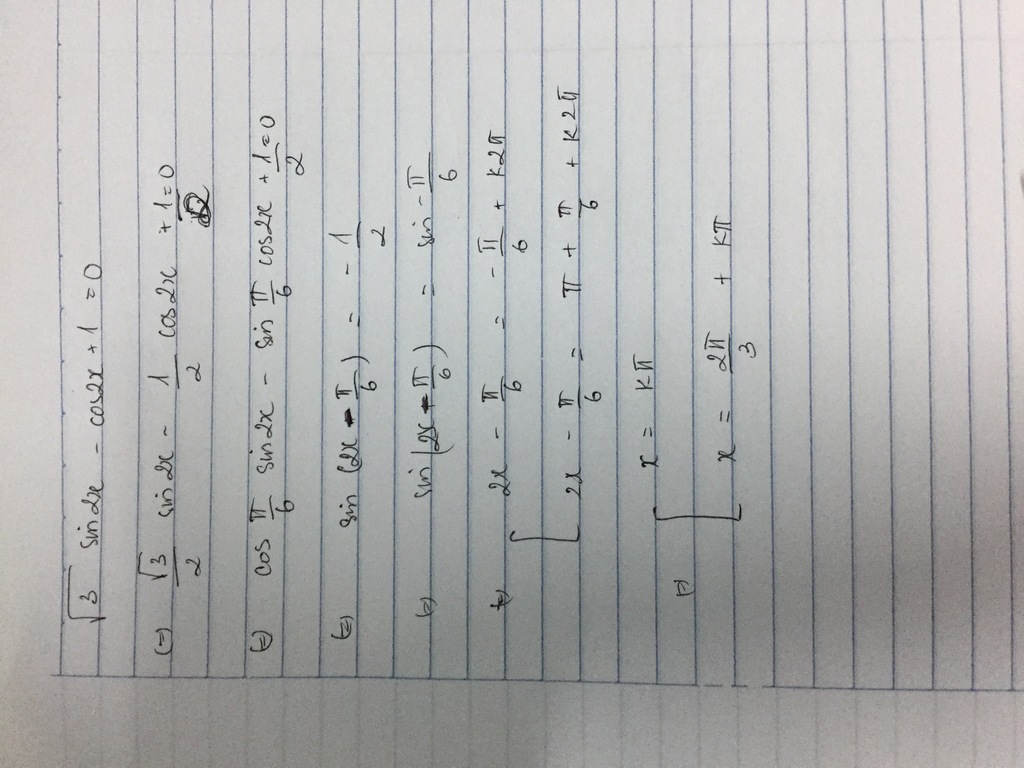 √3 sin2x - cos2x + 1 = 0
(=) √3/2 sin2x - 1/2 cos2x + 1/2 = 0
(=) cos π/6 sin2x - sin π/6 cos2x + 1/2 = 0
(=) sin (2x - π/6) = - 1/2
(=) sin (2x - π/6) = sin - π/6
(=) [ 2x - π/6 = - π/6 + k2π
2x - π/6 = π + π/6 + k2π
(=) [ x = kπ
x = 2π/3 + kπ